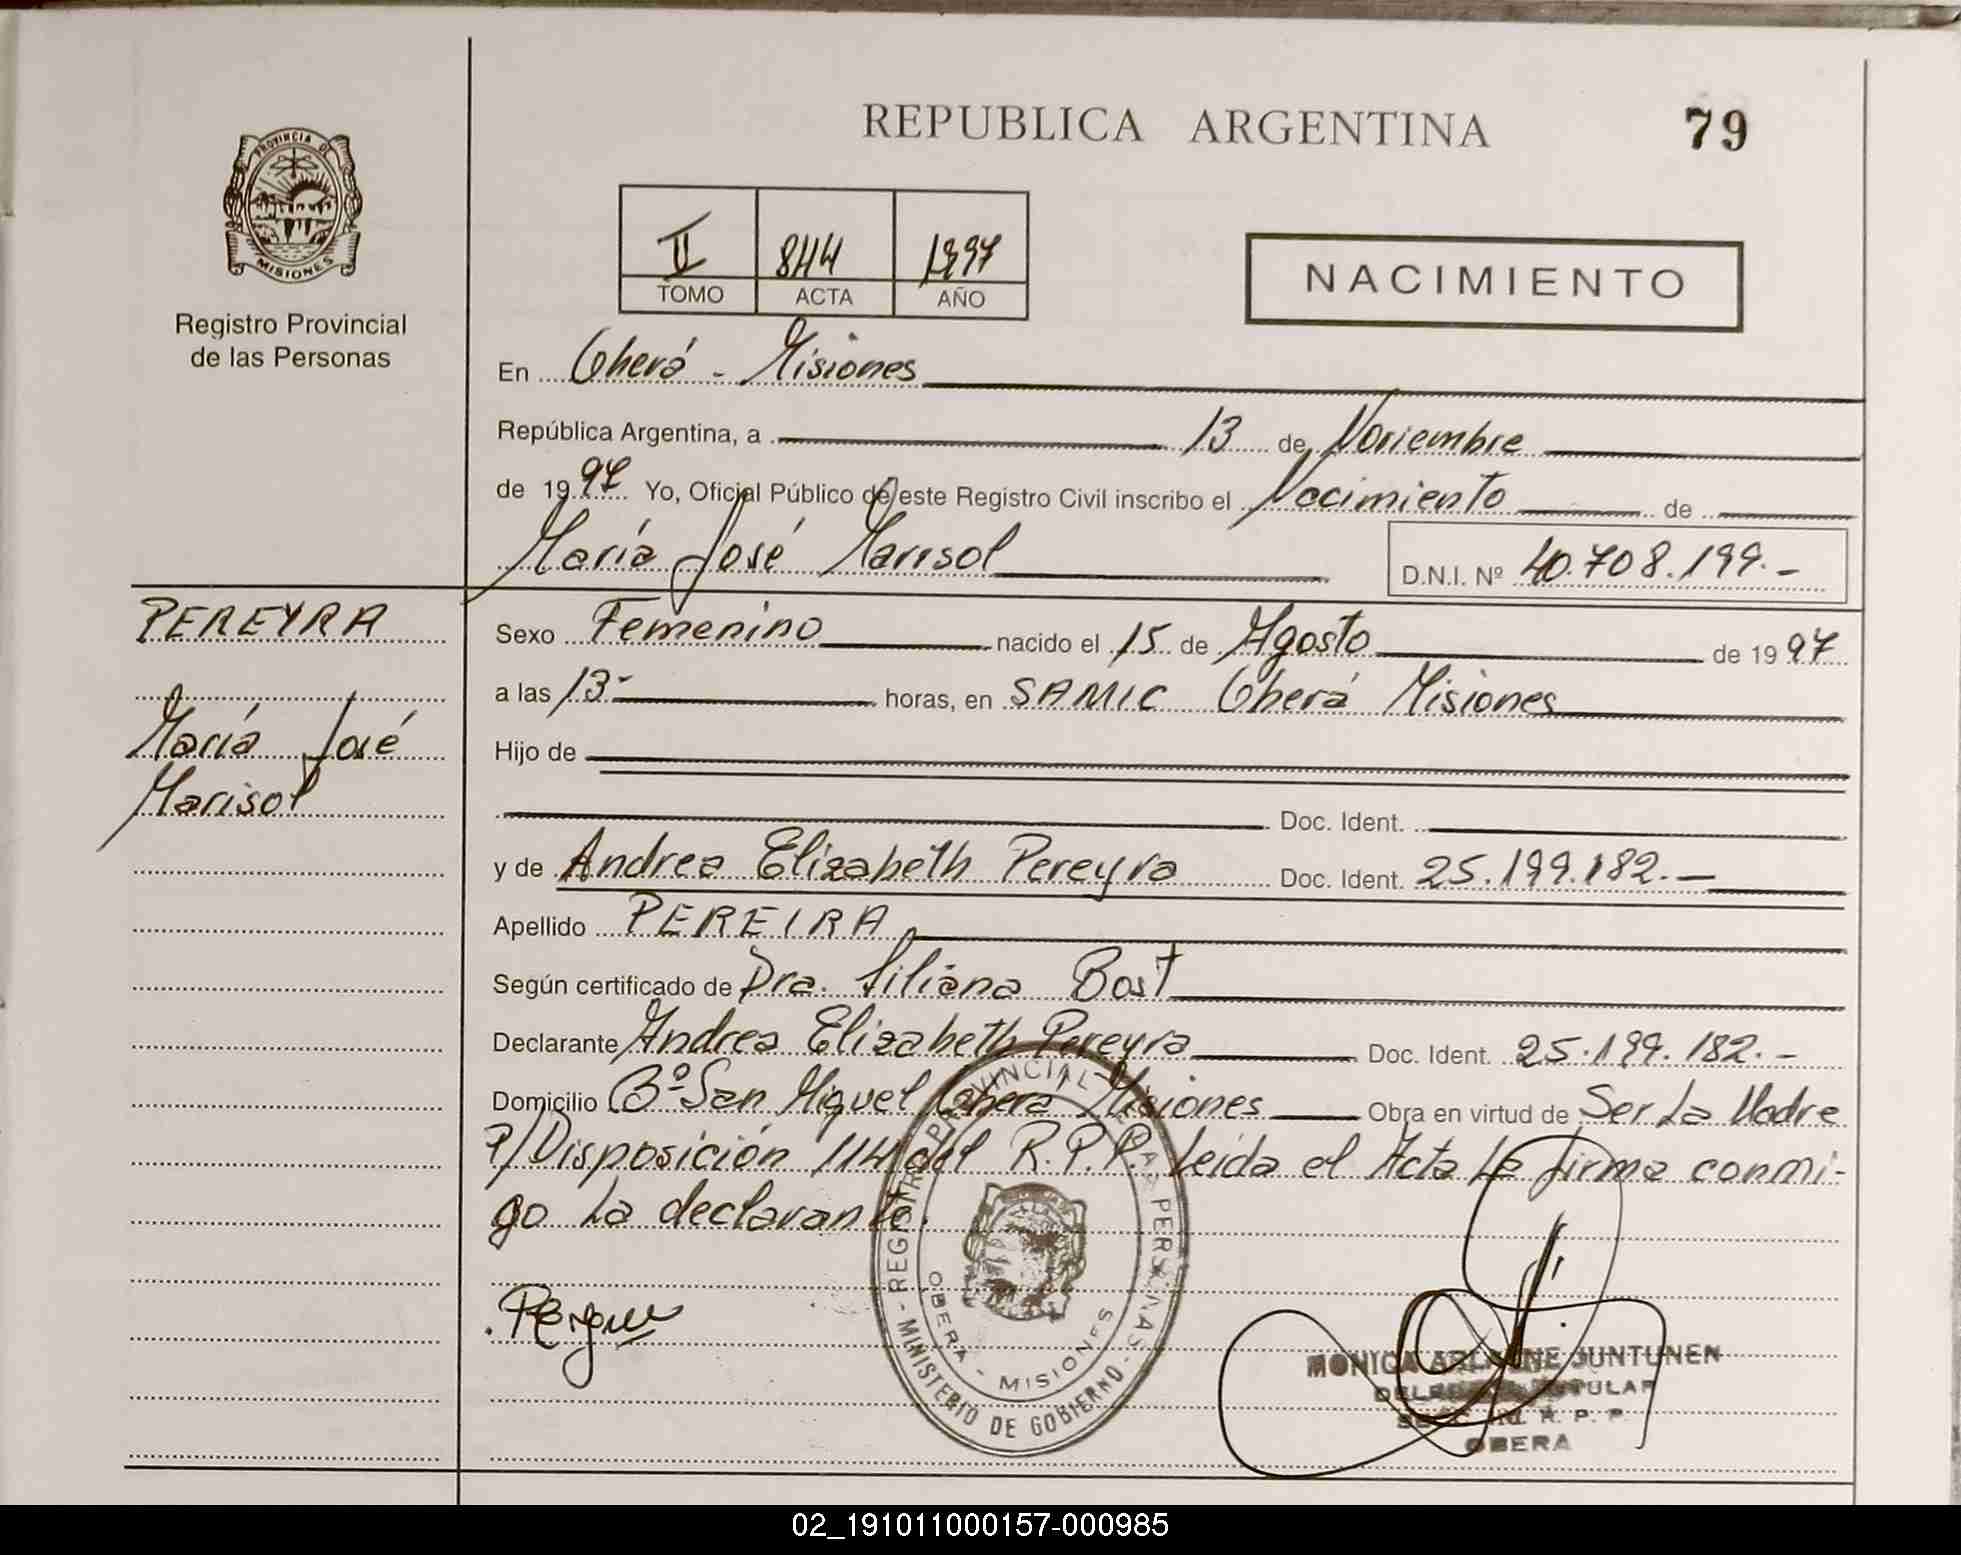 REPUBLICA ARGENTINA
79
PROVINCIA DE
MISIONES
Registro Provincial
de las Personas
II 844 1997
TOMO ACTA AÑO
NACIMIENTO
En Oberá - Misiones
República Argentina, a 13 de Noviembre
de 1997 Yo, Oficial Público de este Registro Civil inscribo el Nacimiento de
María José Marisol D.N.I. Nº 40.708.199.-
PEREYRA
María José
Marisol
Sexo Femenino nacido el 15 de Agosto de 1997
a las 13- horas, en SAMIC Oberá Misiones
Hijo de
Doc. Ident.
y de Andrea Elizabeth Pereyra Doc. Ident. 25.199.182.-
Apellido PEREIRA
Según certificado de Dra. Liliana Bost
Declarante Andrea Elizabeth Pereyra Doc. Ident. 25.199.182.-
Domicilio Bº San Miguel Oberá Misiones Obra en virtud de Ser La Madre
P/Disposición 114 del R.P.P. Leída el Acta La firma conmi-
go La declarante.
REGISTRO PROVINCIAL DE LAS PERSONAS
- MINISTERIO DE GOBIERNO -
OBERA - MISIONES
MONICA JUNTUNEN
R. P. P.
OBERA
02_191011000157-000985